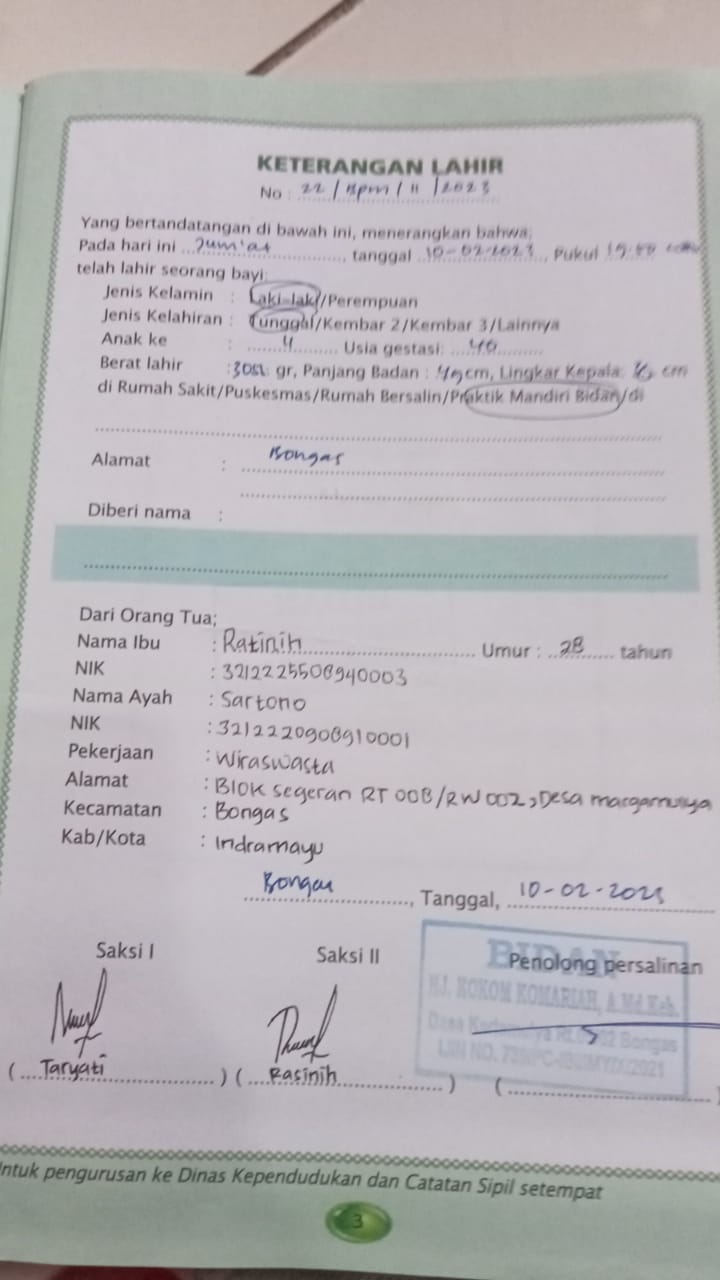 KETERANGAN LAHIR
No : 22 / Bpm / II / 2023
Yang bertandatangan di bawah ini, menerangkan bahwa;
Pada hari ini Jum'at, tanggal 10-02-2023, Pukul
telah lahir seorang bayi:
Jenis Kelamin : Laki-laki/Perempuan
Jenis Kelahiran : Tunggal/Kembar 2/Kembar 3/Lainnya
Anak ke : 4 Usia gestasi: 40
Berat lahir : gr, Panjang Badan : 49 cm, Lingkar Kepala: cm
di Rumah Sakit/Puskesmas/Rumah Bersalin/Praktik Mandiri Bidan/di
Alamat : Bongas
Diberi nama :
Dari Orang Tua;
Nama Ibu : Ratinih Umur : 28 tahun
NIK : 3212225508940003
Nama Ayah : Sartono
NIK : 3212220908910001
Pekerjaan : Wiraswasta
Alamat : Blok segeran RT 008/RW 002, Desa margamulya
Kecamatan : Bongas
Kab/Kota : Indramayu
Bongas, Tanggal, 10-02-2023
Saksi I Saksi II Penolong persalinan
BIDAN
HJ. KOKOM KOMARIAH, A.Md.Keb.
Desa Bongas
(Taryati) (Rasinih) (
untuk pengurusan ke Dinas Kependudukan dan Catatan Sipil setempat
3